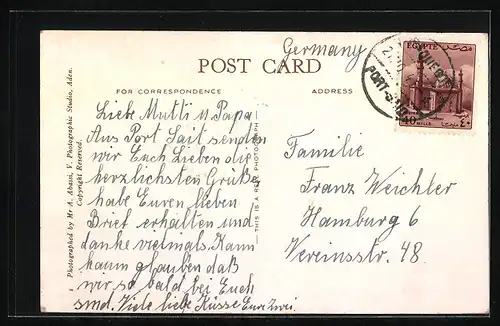 Germany
POST CARD
FOR CORRESPONDENCE
ADDRESS
Liebe Mutti u. Papa
Aus Port Sait senden
wir Euch Lieben die
herzlichsten Grüße
habe Euren lieben
Brief erhalten und
danke vielmals. Kann
kaum glauben daß
wir so bald bei Euch
sind. Viele liebe Küsse Eure zwei
Familie
Franz Weichter
Hamburg 6
Vereinsstr. 48
Photographed by Mr A. Abassi, V. Photographic Studio, Aden.
Copyright Reserved.
THIS IS A REAL PHOTOGRAPH
EGYPTE مصر
PORT-SAID